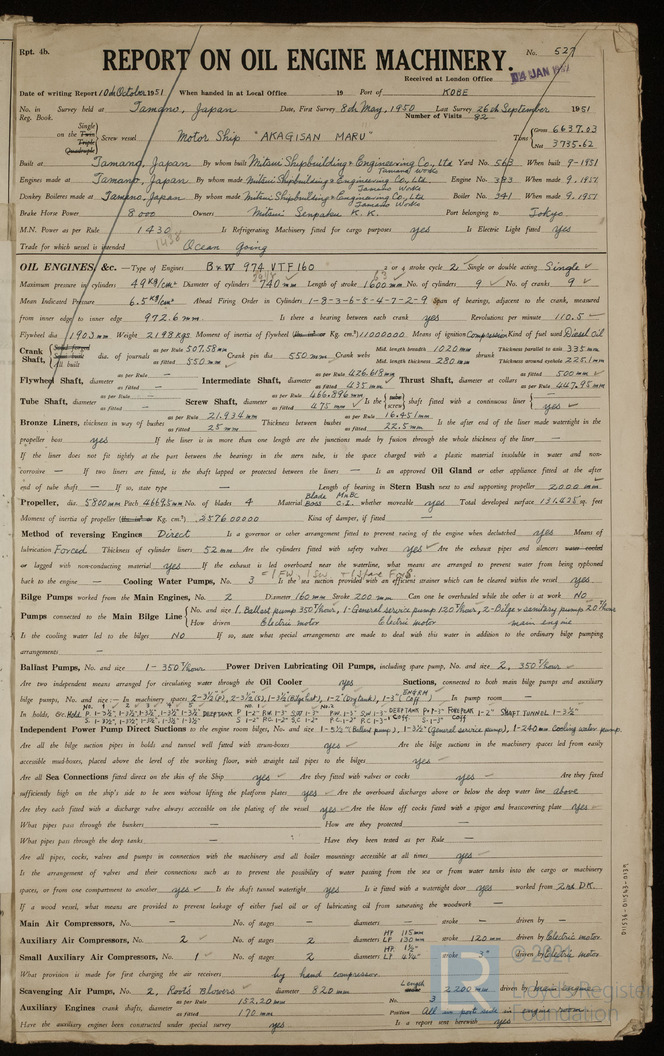 Rpt. 4b.
No. 527
REPORT ON OIL ENGINE MACHINERY.
Received at London Office
JAN 1952
Date of writing Report 10th October 1951 When handed in at Local Office 19 Port of KOBE
No. in Survey held at Tamano, Japan Date, First Survey 8th May, 1950 Last Survey 26th September 1951
Reg. Book. Number of Visits 82
Single
on the Twin Triple Quadruple Screw vessel Motor Ship "AKAGISAN MARU" Tons Gross 6637.03 Net 3735.62
Built at Tamano, Japan By whom built Mitsui Shipbuilding & Engineering Co., Ltd Tamano Works Yard No. 563 When built 9-1951
Engines made at Tamano, Japan By whom made Mitsui Shipbuilding & Engineering Co. Ltd. Tamano Works Engine No. 393 When made 9.1951
Donkey Boilers made at Tamano, Japan By whom made Mitsui Shipbuilding & Engineering Co., Ltd Tamano Works Boiler No. 341 When made 9.1951
Brake Horse Power 8000 Owners Mitsui Senpaku K.K. Port belonging to Tokyo
M.N. Power as per Rule 1430 Is Refrigerating Machinery fitted for cargo purposes yes Is Electric Light fitted yes
Trade for which vessel is intended Ocean going
OIL ENGINES, &c.—Type of Engines B&W 974 VTF 160 2 or 4 stroke cycle 2 Single or double acting Single
Maximum pressure in cylinders 49 Kg/cm² Diameter of cylinders 740 mm Length of stroke 1600 mm No. of cylinders 9 No. of cranks 9
Mean Indicated Pressure 6.5 Kg/cm² Ahead Firing Order in Cylinders 1-8-3-6-5-4-7-2-9 Span of bearings, adjacent to the crank, measured
from inner edge to inner edge 972.6 mm Is there a bearing between each crank yes Revolutions per minute 110.5
Flywheel dia 1903 mm Weight 2198 Kgs Moment of inertia of flywheel (lbs. in² or Kg. cm²) 11000000 Means of ignition Compression Kind of fuel used Diesel Oil
Crank Shaft, Solid forged Semi built All built dia. of journals as per Rule 507.58 mm as fitted 550 mm Crank pin dia 550 mm Crank webs Mid. length breadth 1020 mm Mid. length thickness 280 mm shrunk Thickness parallel to axis 335 mm Thickness around eyehole 225.1 mm
Flywheel Shaft, diameter as per Rule — as fitted — Intermediate Shaft, diameter as per Rule 426.618 mm as fitted 435 mm Thrust Shaft, diameter at collars as per Rule 500 mm as fitted 447.95 mm
Tube Shaft, diameter as per Rule — as fitted — Screw Shaft, diameter as per Rule 466.896 mm as fitted 475 mm Is the tube screw shaft fitted with a continuous liner yes
Bronze Liners, thickness in way of bushes as per Rule 21.934 mm as fitted 25 mm Thickness between bushes as per Rule 16.451 mm as fitted 22.5 mm Is the after end of the liner made watertight in the
propeller boss yes If the liner is in more than one length are the junctions made by fusion through the whole thickness of the liner —
If the liner does not fit tightly at the part between the bearings in the stern tube, is the space charged with a plastic material insoluble in water and non-
corrosive — If two liners are fitted, is the shaft lapped or protected between the liners — Is an approved Oil Gland or other appliance fitted at the after
end of tube shaft — If so, state type — Length of bearing in Stern Bush next to and supporting propeller 2000 mm
Propeller, dia. 5800 mm Pitch 4669.5 mm No. of blades 4 Material Blade MnBC Boss C.I. whether moveable yes Total developed surface 131.425 sq. feet
Moment of inertia of propeller (lbs. in² or Kg. cm²) 257600000 Kind of damper, if fitted —
Method of reversing Engines Direct Is a governor or other arrangement fitted to prevent racing of the engine when declutched yes Means of
lubrication Forced Thickness of cylinder liners 52 mm Are the cylinders fitted with safety valves yes Are the exhaust pipes and silencers water cooled
or lagged with non-conducting material yes If the exhaust is led overboard near the waterline, what means are arranged to prevent water from being syphoned
back to the engine — Cooling Water Pumps, No. 3 = 1 F.W, 1 S.W + 1 Spare F or S. Is the sea suction provided with an efficient strainer which can be cleared within the vessel yes
Bilge Pumps worked from the Main Engines, No. 2 Diameter 160 mm Stroke 200 mm Can one be overhauled while the other is at work NO
Pumps connected to the Main Bilge Line No. and size 1. Ballast pump 350 T/hour, 1-General service pump 120 T/hour, 2-Bilge & sanitary pump 20 T/hour
How driven Electric motor Electric motor main engine
Is the cooling water led to the bilges NO If so, state what special arrangements are made to deal with this water in addition to the ordinary bilge pumping
arrangements —
Ballast Pumps, No. and size 1-350 T/hour Power Driven Lubricating Oil Pumps, including spare pump, No. and size 2, 350 T/hour
Are two independent means arranged for circulating water through the Oil Cooler yes Suctions, connected to both main bilge pumps and auxiliary
bilge pumps, No. and size:— In machinery spaces 2-3½"(P), 2-3½"(S), 1-3½"(Bilge hat), 1-2"(Dry tank), 1-3"(Engrm Coff) In pump room —
In holds, &c. Hold DEEP TANK DEEP TANK COFF. FORE PEAK COFF 1-2" SHAFT TUNNEL 1-3½"
Independent Power Pump Direct Suctions to the engine room bilges, No. and size 1-9½" (Ballast pump), 1-3½" (General service pump), 1-240 mm cooling water pump.
Are all the bilge suction pipes in holds and tunnel well fitted with strum-boxes yes Are the bilge suctions in the machinery spaces led from easily
accessible mud-boxes, placed above the level of the working floor, with straight tail pipes to the bilges yes
Are all Sea Connections fitted direct on the skin of the Ship yes Are they fitted with valves or cocks yes Are they fixed
sufficiently high on the ship's side to be seen without lifting the platform plates yes Are the overboard discharges above or below the deep water line above
Are they each fitted with a discharge valve always accessible on the plating of the vessel yes Are the blow off cocks fitted with a spigot and brass covering plate yes
What pipes pass through the bunkers — How are they protected —
What pipes pass through the deep tanks — Have they been tested as per Rule —
Are all pipes, cocks, valves and pumps in connection with the machinery and all boiler mountings accessible at all times yes
Is the arrangement of valves and their connections such as to prevent the possibility of water passing from the sea or from water tanks into the cargo or machinery
spaces, or from one compartment to another yes Is the shaft tunnel watertight yes Is it fitted with a watertight door yes worked from 2nd DK.
If a wood vessel, what means are provided to prevent leakage of either fuel oil or of lubricating oil from saturating the woodwork —
Main Air Compressors, No. — No. of stages — diameters — stroke — driven by —
Auxiliary Air Compressors, No. 2 No. of stages 2 diameters HP 115 mm LP 130 mm stroke 120 mm driven by Electric motor
Small Auxiliary Air Compressors, No. 1 No. of stages 2 diameters HP 1½" LP 4¼" stroke 3" driven by Electric motor
What provision is made for first charging the air receivers by hand compressor
Scavenging Air Pumps, No. 2, Roots Blowers diameter 820 mm Length 2200 mm driven by main engine
Auxiliary Engines crank shafts, diameter as per Rule 152.20 mm as fitted 170 mm No. 3 Position All on port side in engine room
Have the auxiliary engines been constructed under special survey yes Is a report sent herewith yes
© 2024
Lloyd's Register
Foundation